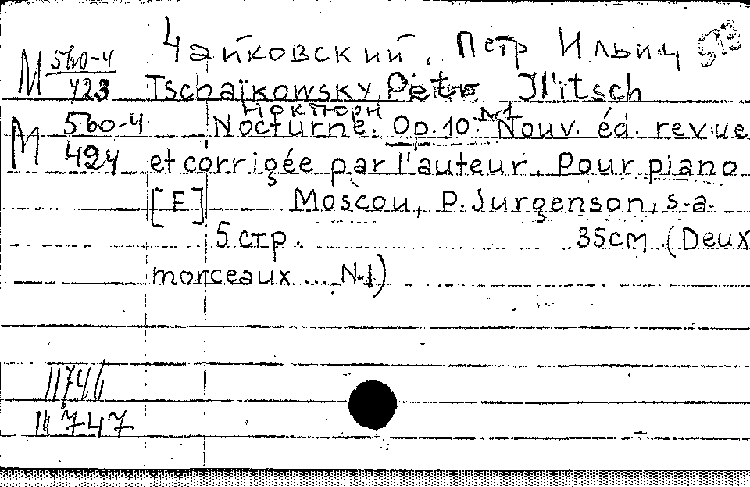 Чайковский, Петр Ильич
М 560-4/423 Tschaïkowsky, Petr Il'itsch
Ноктюрн №1
М 560-4/424 Nocturne. Op. 10. Nouv. éd. revue
et corrigée par l'auteur. Pour piano
[F] Moscou, P. Jurgenson, s.a.
5 стр. 35cm (Deux
morceaux ... N.1)
11746
11747